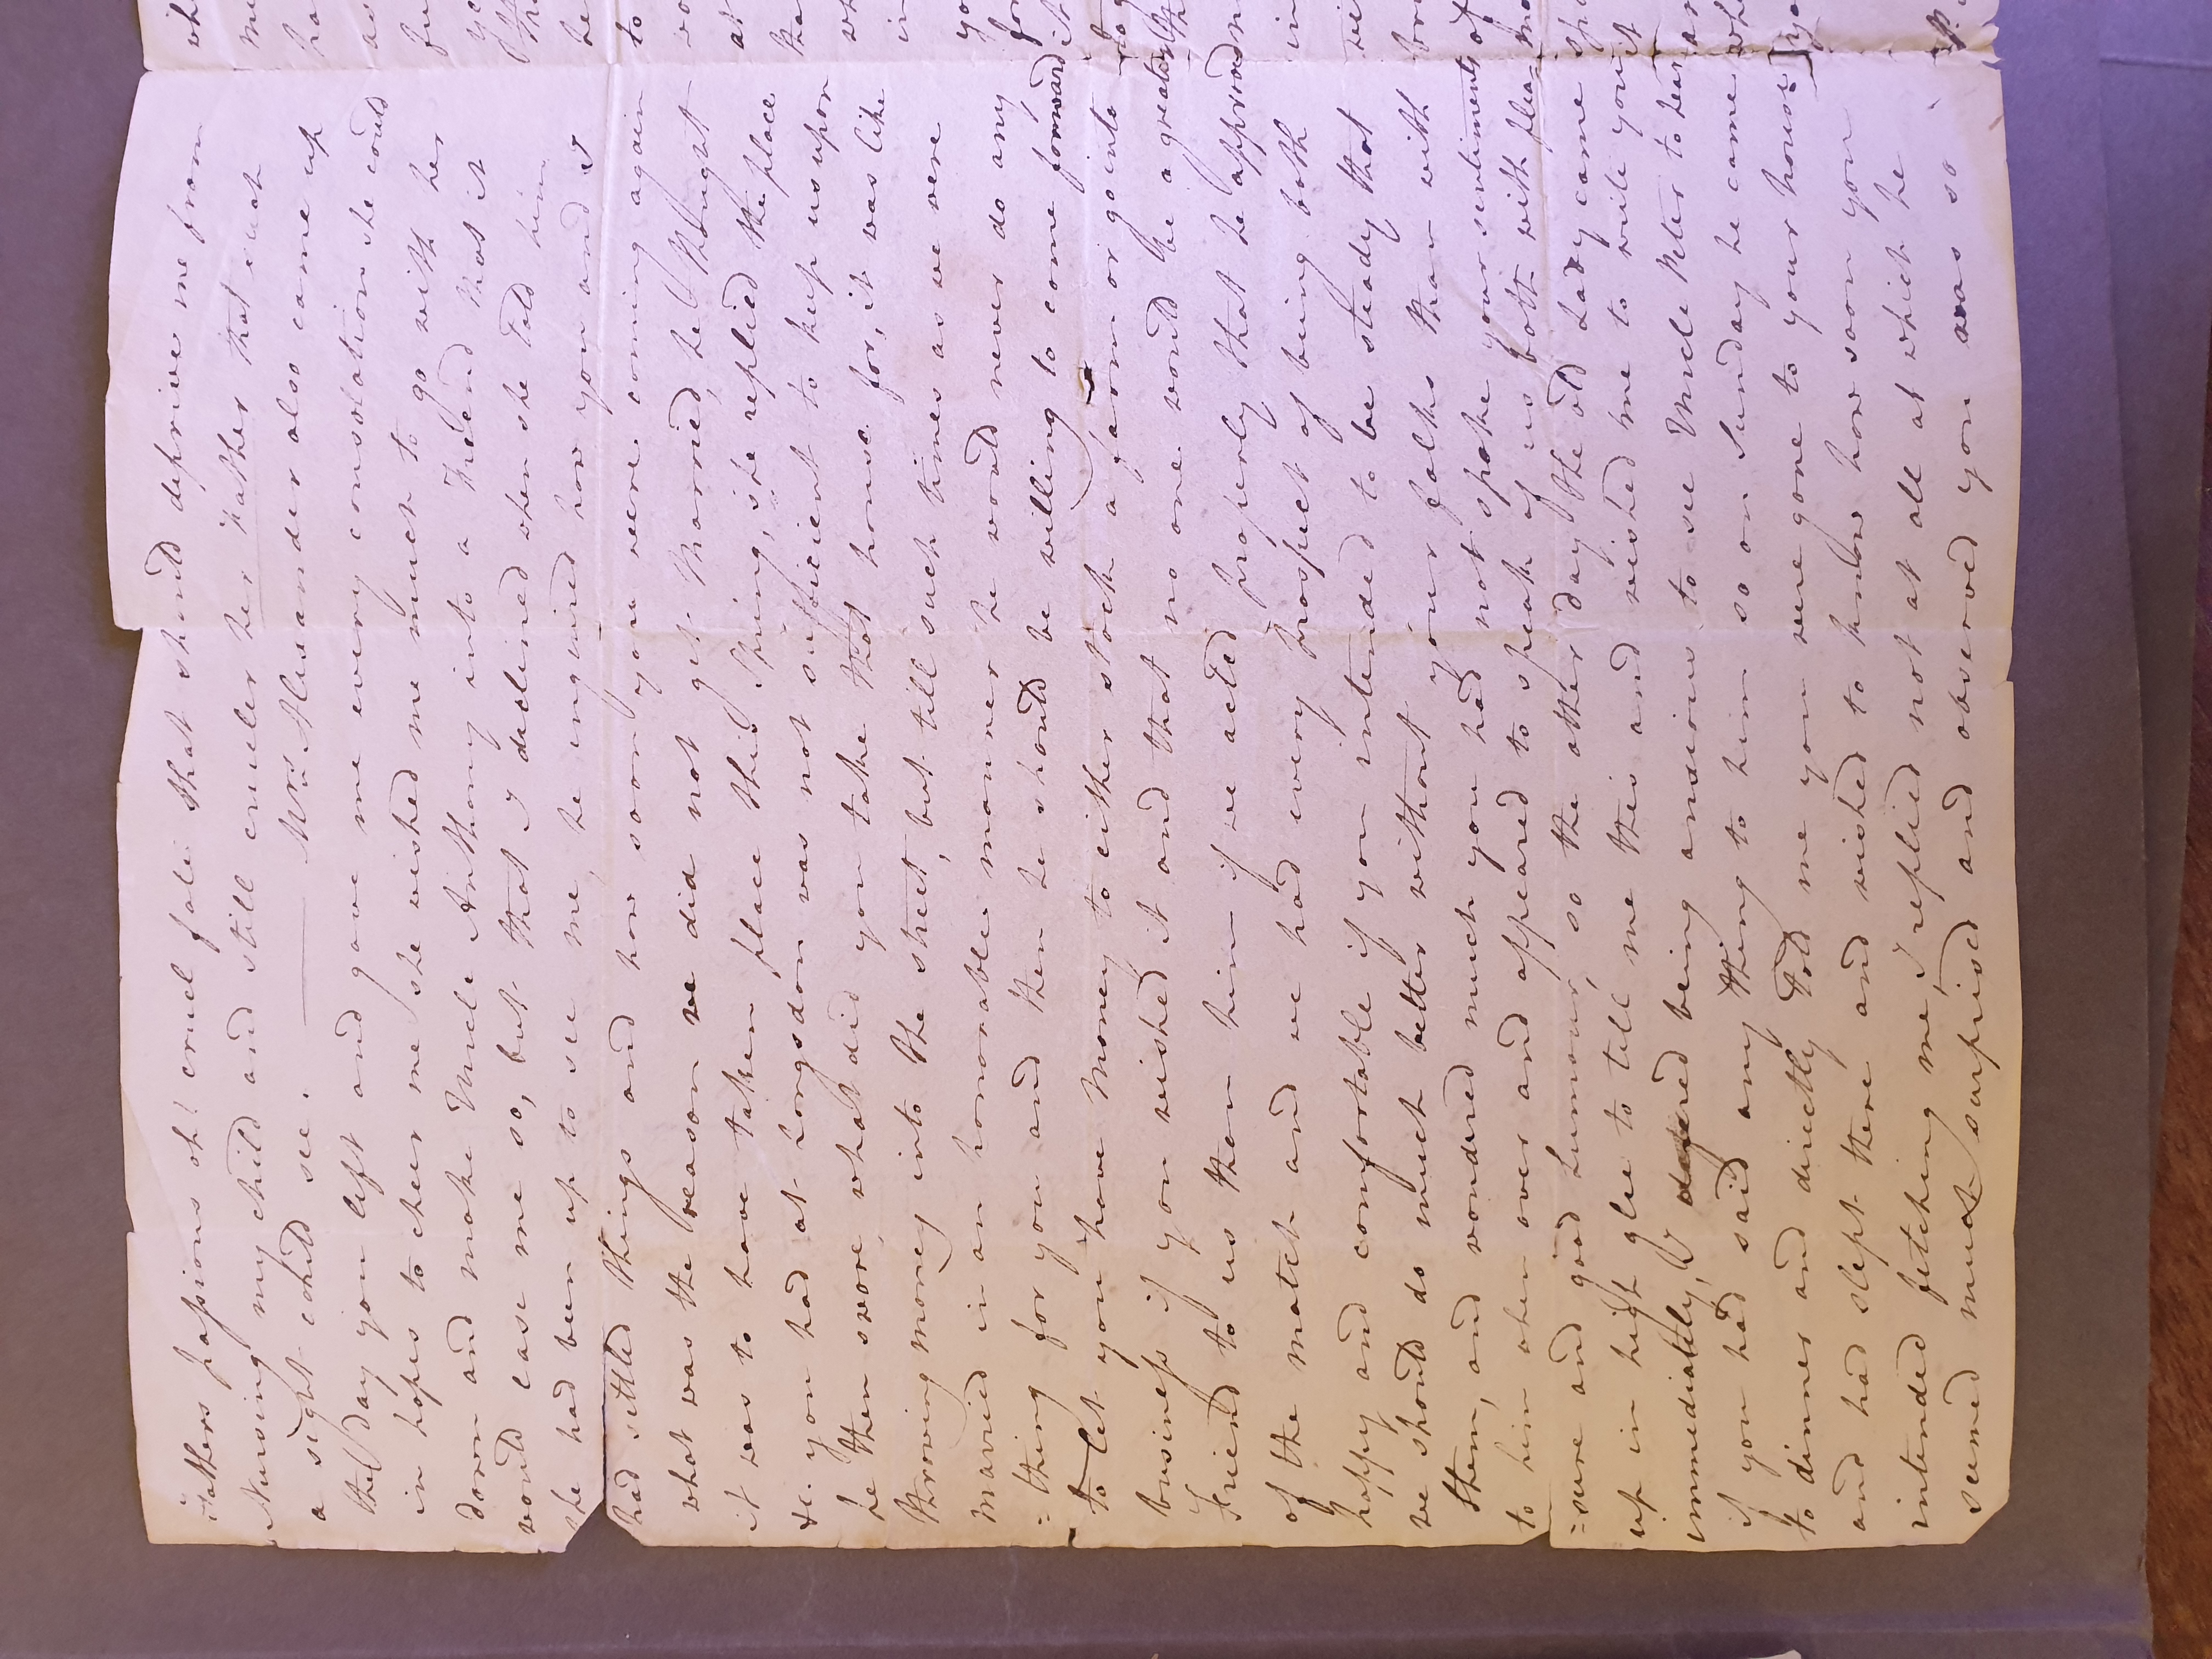 Fathers passions oh! cruel fate that should deprive me from
Nursing my child and still crueler her Father that such
a sight could see. Mrs. Alexander also came up
the day you left and gave me every consolation she could
in hopes to cheer me she wished me much to go with her
down and make Uncle Anthony into a Friend that it
would ease me so, but that I declined when she told him
she had been up to see me, he inquired how you and I
had settled things and how soon you were coming again
what was the reason we did not get Married, he thought
it was to have taken place this Spring, she replied the place
&c. you had at Longsdon was not sufficient to keep us upon
he then swore, what did you take that house for, it was like
throwing money into the street, but till such times as we were
Married in an honorable manner he would never do any
=thing for you and then he should be willing to come forward
to let you have Money to either stock a farm or go into
business if you wished it and that no one would be a greater
Friend to us than him if we acted properly that he approved
of the match and we had every prospect of being both
happy and comfortable if you intended to be steady that
we should do much better without your folks than with
them, and wondered much you had not spoke your sentiments
to him when over and appeared to speak of us both with plea=
=sure and good humour, so the other day the old Lady came
up in high glee to tell me this and wished me to write you
immediately, & being anxious to see Uncle Peter to hear
if you had said any thing to him so on Sunday he came
to dinner and directly told me you were gone to your house
and had slept there and wished to know how soon you
intended fetching me, I replied not at all at which he
seemed much surprised and observed you was so